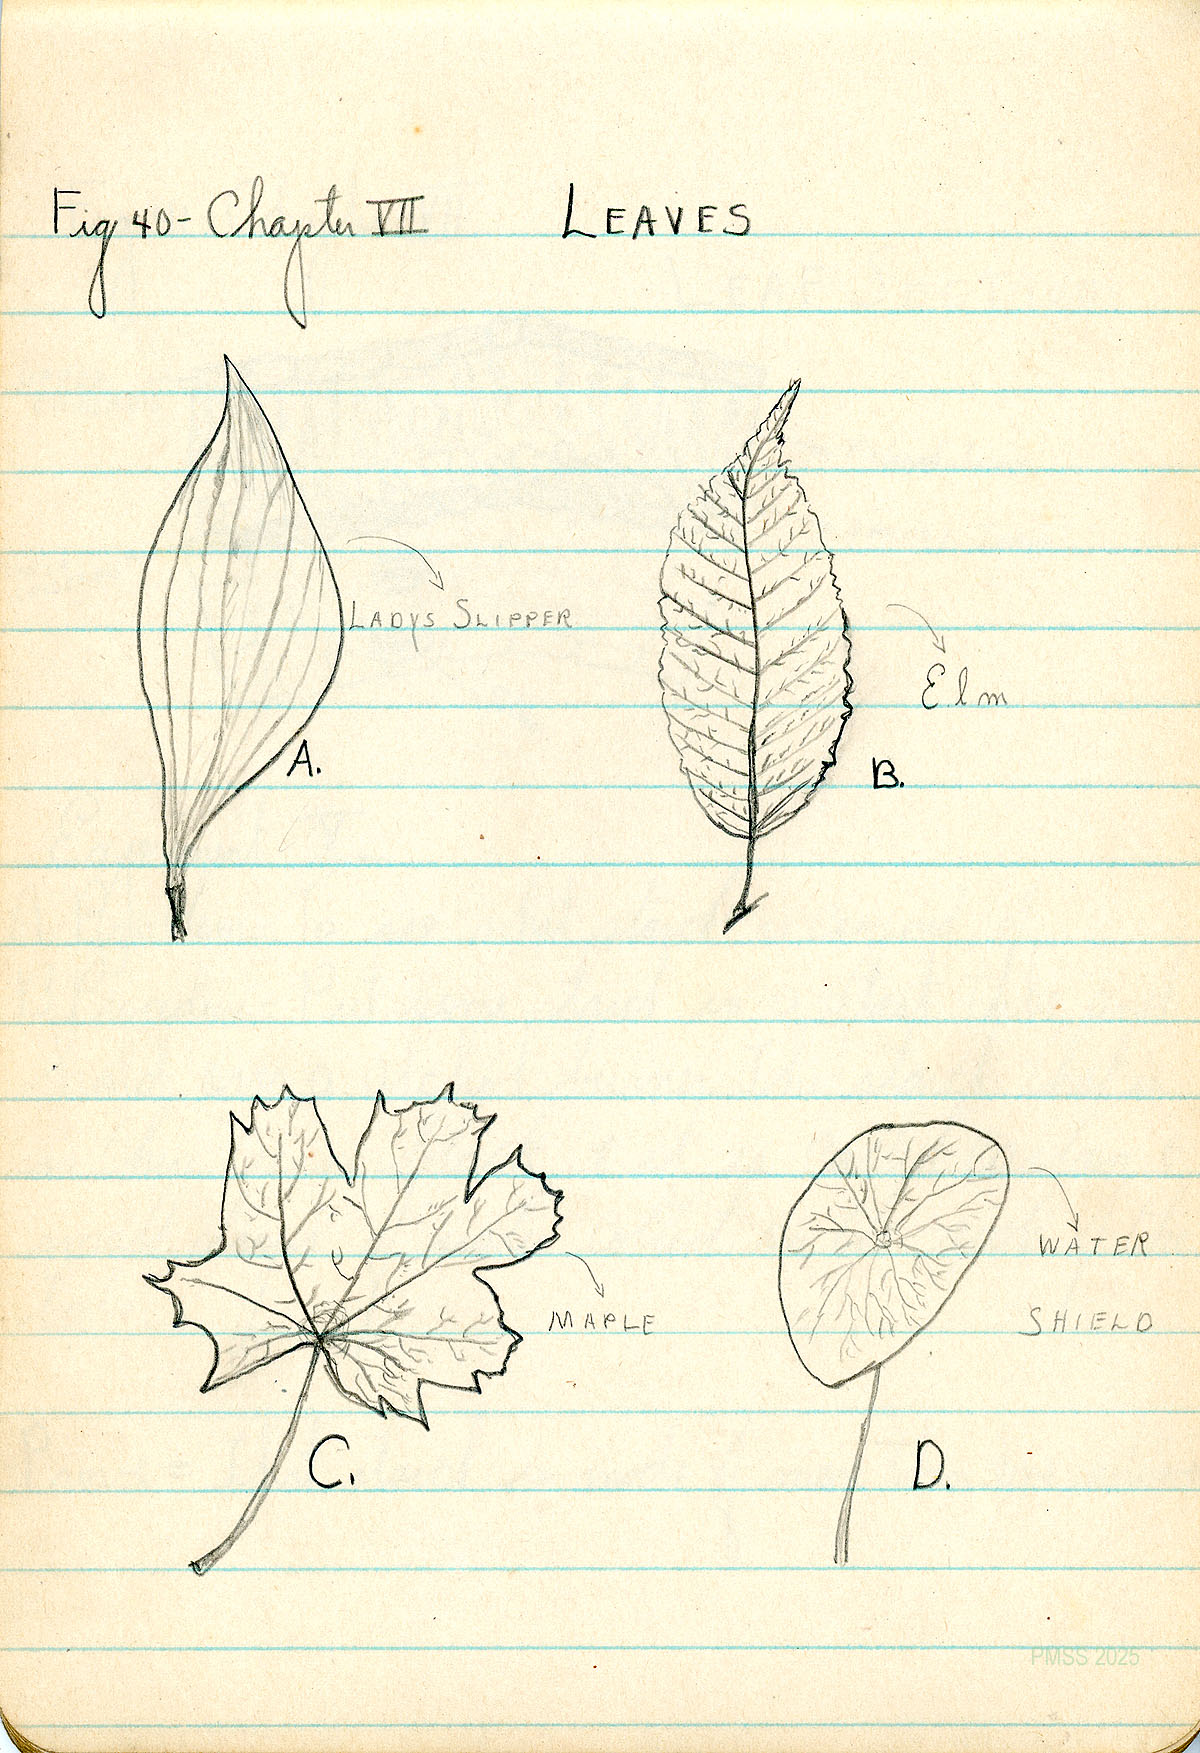 Fig 40- Chapter VII LEAVES
LADYS SLIPPER
Elm
A.
B.
MAPLE
WATER
SHIELD
C.
D.
PMSS 2025